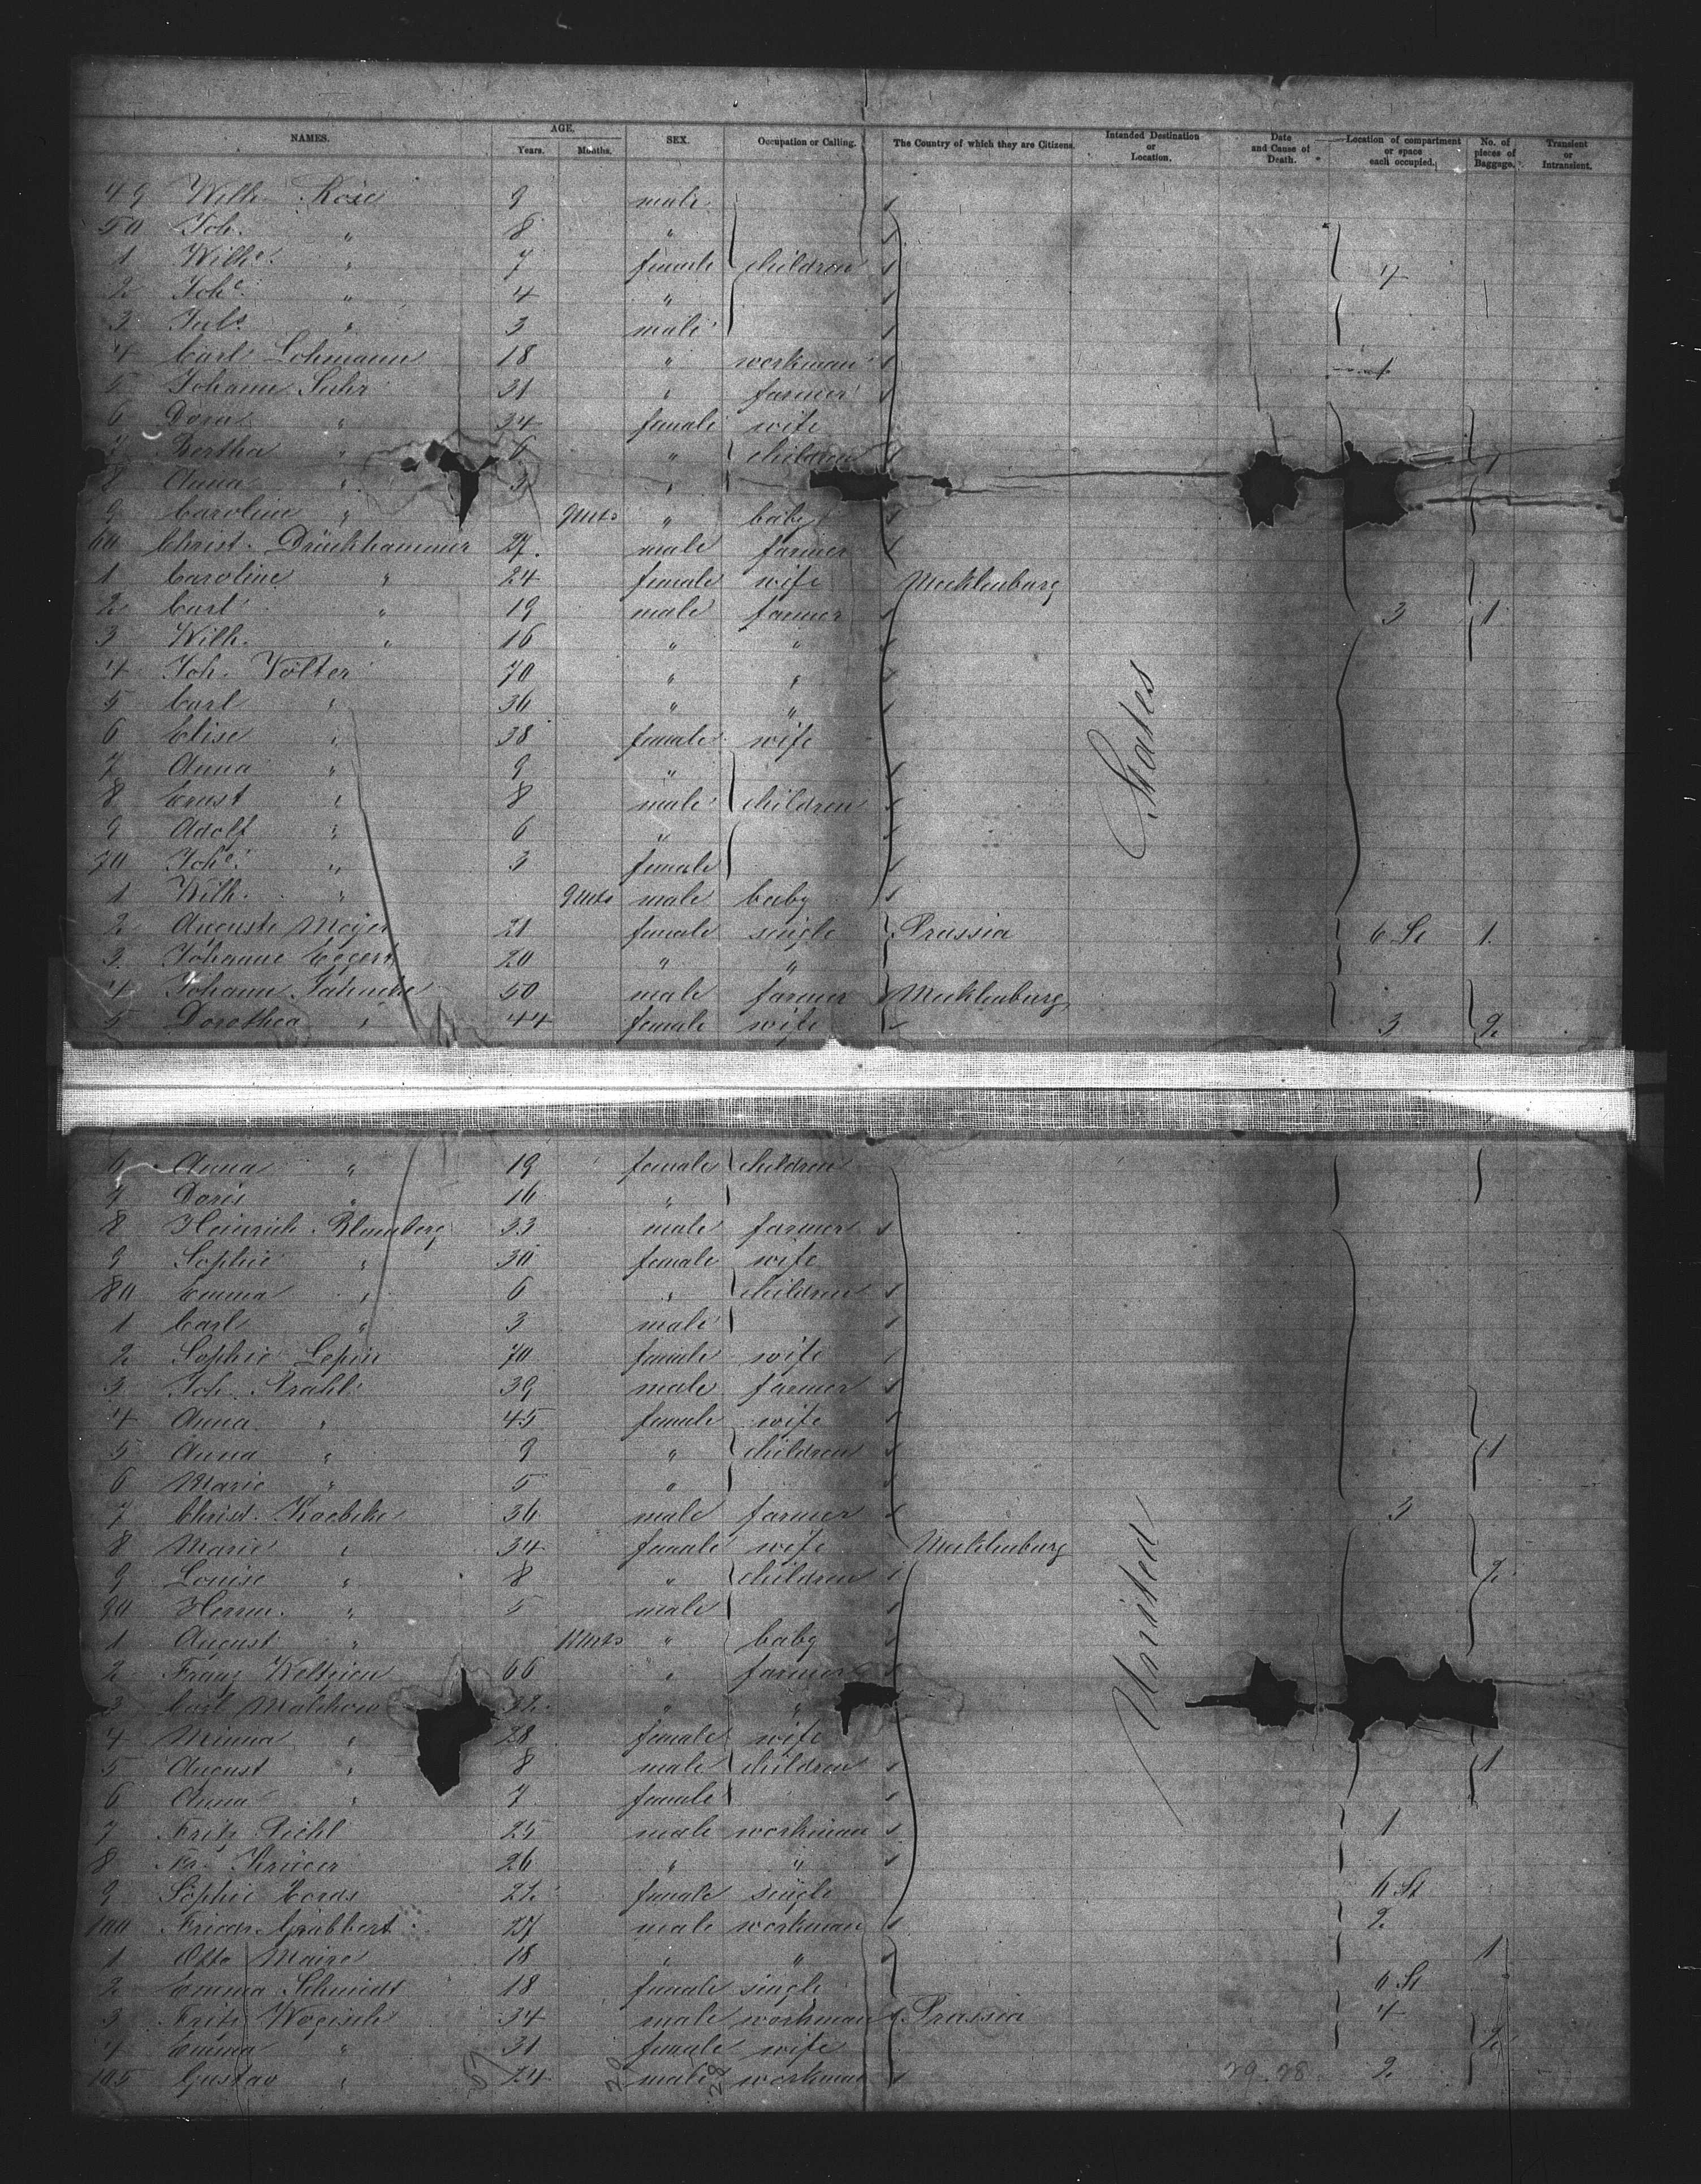 NAMES. AGE. Years. Months. SEX. Occupation or Calling. The Country of which they are Citizens. Intended Destination or Location. Date and Cause of Death. Location of compartment or space each occupied. No. of pieces of Baggage. Transient or Intransient.
49 Wilh. Rose 9 male
50 Joh. " 8 "
1 Wilhe. " 7 female children 4
2 Johe. " 4 "
3 Juls. " 3 male
4 Carl Lohmann 18 " workman 1
5 Johann Suhr 31 " farmer
6 Dora " 34 female wife
7 Bertha " 6 " children 1
8 Anna " 3 "
9 Caroline " 9 mts " baby
60 Christ. Drückhammer 27. male farmer
1 Caroline " 24 female wife Mecklenburg
2 Carl " 19 male farmer 3 1
3 Wilh. " 16 " "
4 Joh. Völter 70 " "
5 Carl " 36 " "
6 Elise " 38 female wife
7 Anna " 9 "
8 Ernst " 8 male children
9 Adolf " 6 "
70 Johe. " 3 female
1 Wilh. " 9 mts male baby
2 Auguste Meyer 21 female single Prussia 6 St 1.
3. Johanne Eggert 20 " "
4 Johann Jahncke 50 male farmer Mecklenburg
5 Dorothea " 44 female wife 3 2
States
6 Anna " 19 female children
7 Doris " 16 "
8 Heinrich Blomberg 33 male farmer
9 Sophie " 30 female wife
80 Emma " 6 " children
1 Carl " 3 male
2 Sophie Lepin 70 female wife
3 Joh. Strahl 39 male farmer
4 Anna " 45 female wife
5 Anna " 9 " children 1
6 Marie " 5 "
7 Christ. Koebcke 36 male farmer 3
8 Marie " 34 female wife Mecklenburg
9 Louise " 8 " children 2
90 Herm. " 5 male
1 August " 11 mts " baby
2 Franz Weltzien 66 " farmer
3 Carl Malchow 32 " "
4 Minna " 28 female wife
5 August " 8 male children 1
6 Anna " 7 female
7 Fritz Piehl 25 male workman 1
8 Fr. Krüger 26 " "
9 Sophie Cords 22 female single 6 St
100 Friedr. Grabbert 27 male workman 2
1 Otto 18 " " 1
2 Emma Schmidt 18 female single 6 St
3 Fritz 34 male workman Prussia 4
4 Emma " 31 female wife 2
105 Gustav " 24 male workman 2
United
29 28